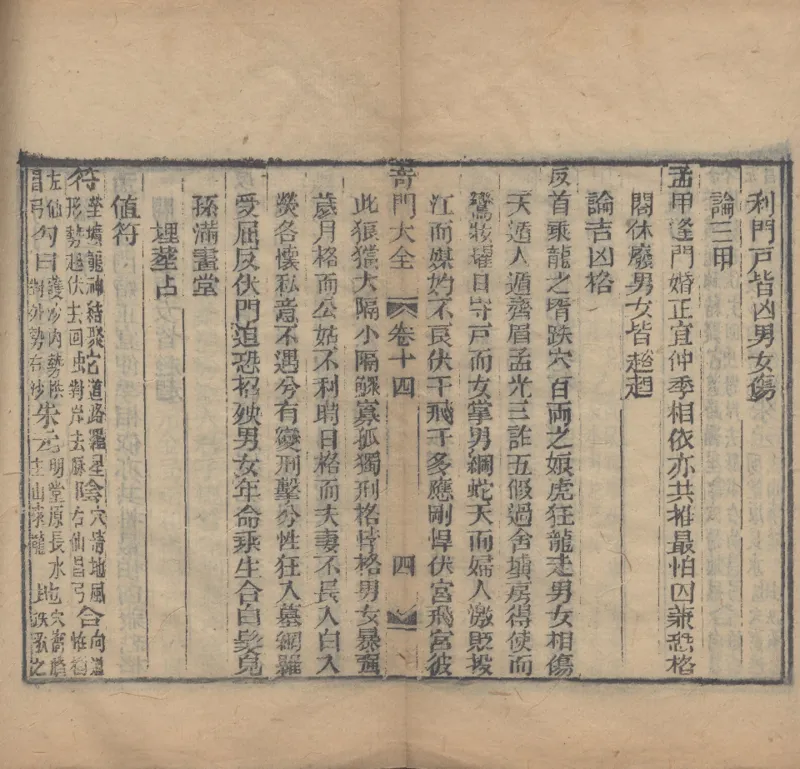 利門戸皆凶男女傷
論三甲
孟甲逢門婚正宜仲季相依亦共推最怕囚兼恐格
閉休廢男女皆趦趄
論吉凶格
反首乘龍之壻跌穴百両之娘虎狂龍走男女相傷
天遁人遁齊眉孟光三詐五假過舍填房得使而
鴛 耀目守戸而女掌男綱蛇夭而婦人激貶投
江而媒妁不良伏干飛干多應剛悍伏宮飛宮彼
奇門大全 卷十四 四
此猖狂大隔小隔鰥寡孤獨刑格悖格男女暴
歲月格而公姑不利時日格而夫妻不長入白入
熒各懷私意不遇兮有變刑擊兮性狂入墓網羅
受屈反伏門迫恐招殃男女年命乘生合白髮兒
孫滿畫堂
埋塟占
值符
符塋墳龍神結聚蛇道路羅星陰穴情地風合向
形勢起伏去回虫對岸去脉右仙昌弓
左仙勾白護沙内勢朱元明堂原長水
昌弓對外勢右沙主山來龍地之